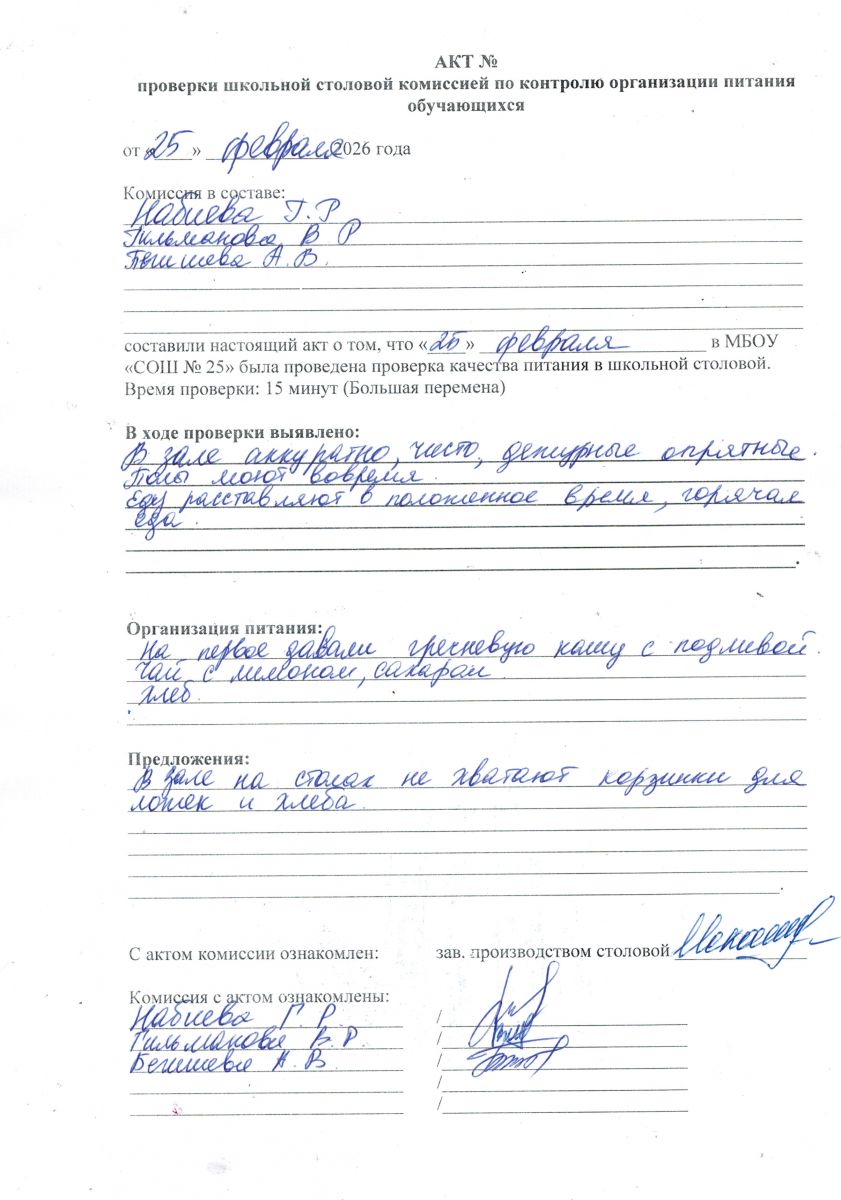 АКТ №
проверки школьной столовой комиссией по контролю организации питания
обучающихся
от «25» февраля 2026 года
Комиссия в составе:
Набиева Г. Р
Гильманова В Р
Бегишева А. В.
составили настоящий акт о том, что «25» февраля в МБОУ
«СОШ № 25» была проведена проверка качества питания в школьной столовой.
Время проверки: 15 минут (Большая перемена)
В ходе проверки выявлено:
В зале аккуратно, чисто, дежурные опрятные.
Полы моют вовремя.
Еду расставляют в положенное время, горячая
еда.
Организация питания:
На первое давали гречневую кашу с подливой.
Чай с лимоном, сахаром
хлеб.
Предложения:
В зале на столах не хватают корзинки для
ложек и хлеба.
С актом комиссии ознакомлен: зав. производством столовой
Комиссия с актом ознакомлены:
Набиева Г. Р /
Гильманова В. Р. /
Бегишева А. В /
/
/